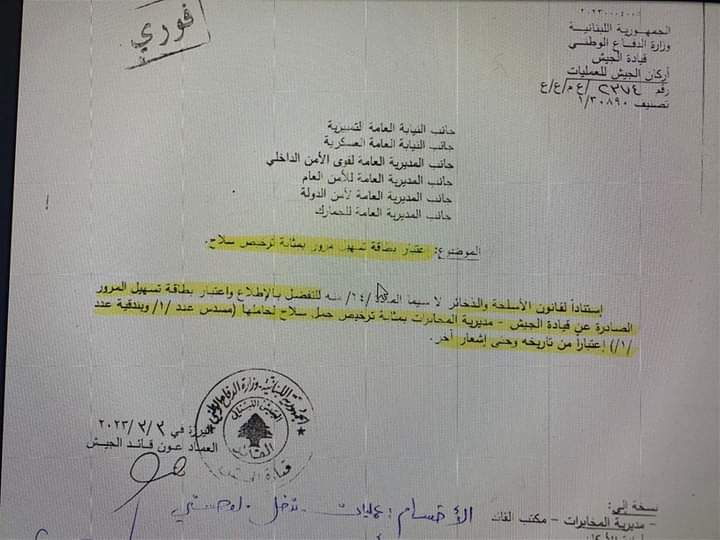 فوري
٢٠٢٣٠٠٠٤٠٠
الجمهورية اللبنانية
وزارة الدفاع الوطني
قيادة الجيش
أركان الجيش للعمليات
رقم ٢٣٧٤ /ع م/ع/ع
تصنيف ١/٣٠٨٩٠
جانب النيابة العامة التمييزية
جانب النيابة العامة العسكرية
جانب المديرية العامة لقوى الأمن الداخلي
جانب المديرية العامة للأمن العام
جانب المديرية العامة لأمن الدولة
جانب المديرية العامة للجمارك
الموضوع: إعتبار بطاقة تسهيل مرور بمثابة ترخيص سلاح.
إستناداً لقانون الأسلحة والذخائر لا سيما المادة /٢٤/ منه للتفضل بالإطلاع واعتبار بطاقة تسهيل المرور
الصادرة عن قيادة الجيش - مديرية المخابرات بمثابة ترخيص حمل سلاح لحاملها (مسدس عدد /١/ وبندقية عدد
/١/) إعتباراً من تاريخه وحتى إشعار آخر.
الجمهورية اللبنانية - وزارة الدفاع الوطني
الجيش اللبناني
القائد
قيادة
اليرزة في ٢٠٢٣/٣/٣
العماد عون قائد الجيش
الأقسام: عمليات -
نسخة إلى:
- مديرية المخابرات - مكتب القائد